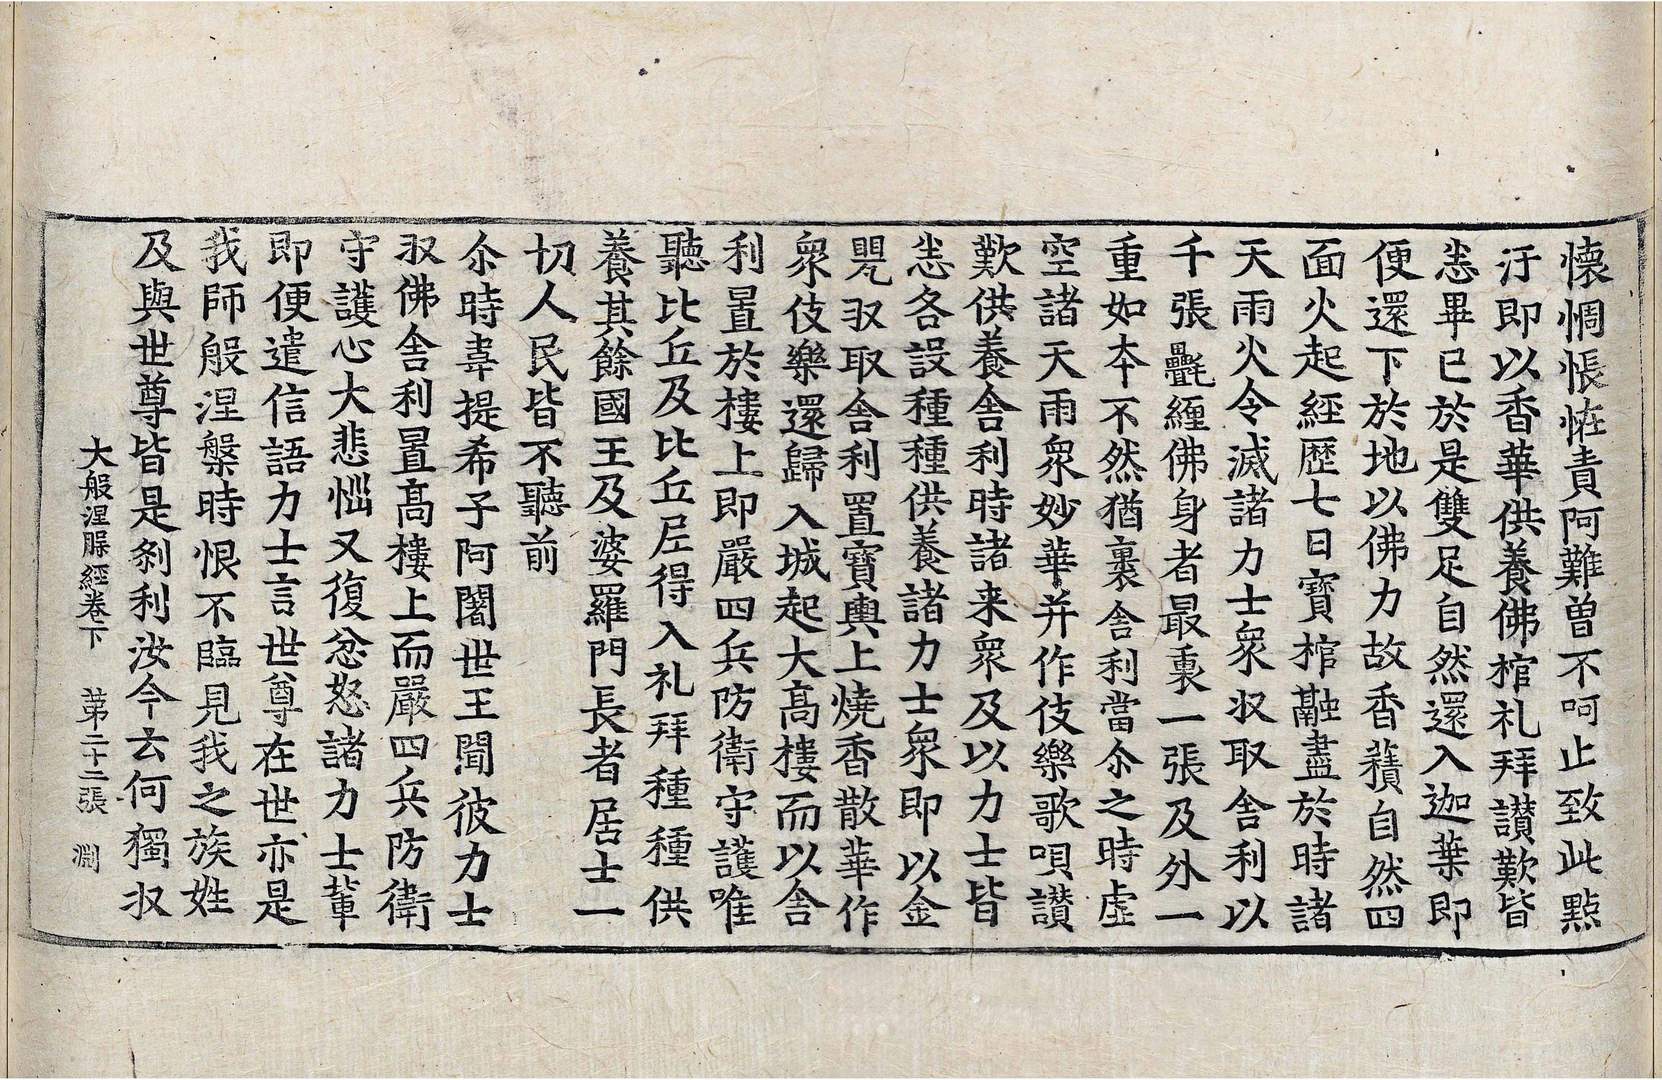 懐惆悵恠責阿難曽不呵止致此點
汙即以香華供養佛棺礼拜讃歎皆
悉畢已於是雙足自然還入迦葉即
便還下於地以佛力故香𧂐自然四
面火起經歷七日寶棺融盡於時諸
天雨火令滅諸力士衆𠬧取舍利以
千張㲲纏佛身者最裏一張及外一
重如本不然猶裹舍利當尒之時虛
空諸天雨衆妙華并作伎樂歌唄讃
歎供養舍利時諸来衆及以力士皆
悉各設種種供養諸力士衆即以金
甖𠬧取舍利置寶輿上燒香散華作
衆伎樂還歸入城起大髙樓而以舍
利置於樓上即嚴四兵防衛守護唯
聽比丘及比丘尼得入礼拜種種供
養其餘國王及婆羅門長者居士一
切人民皆不聽前
尒時韋提希子阿闍世王聞彼力士
𠬧佛舍利置髙樓上而嚴四兵防衛
守護心大悲惱又復忿怒諸力士輩
即便遣信語力士言世尊在世亦是
我師般涅槃時恨不臨見我之族姓
及與世尊皆是刹利汝今云何獨𠬧
大般涅槃經卷下 第二十二張 淵